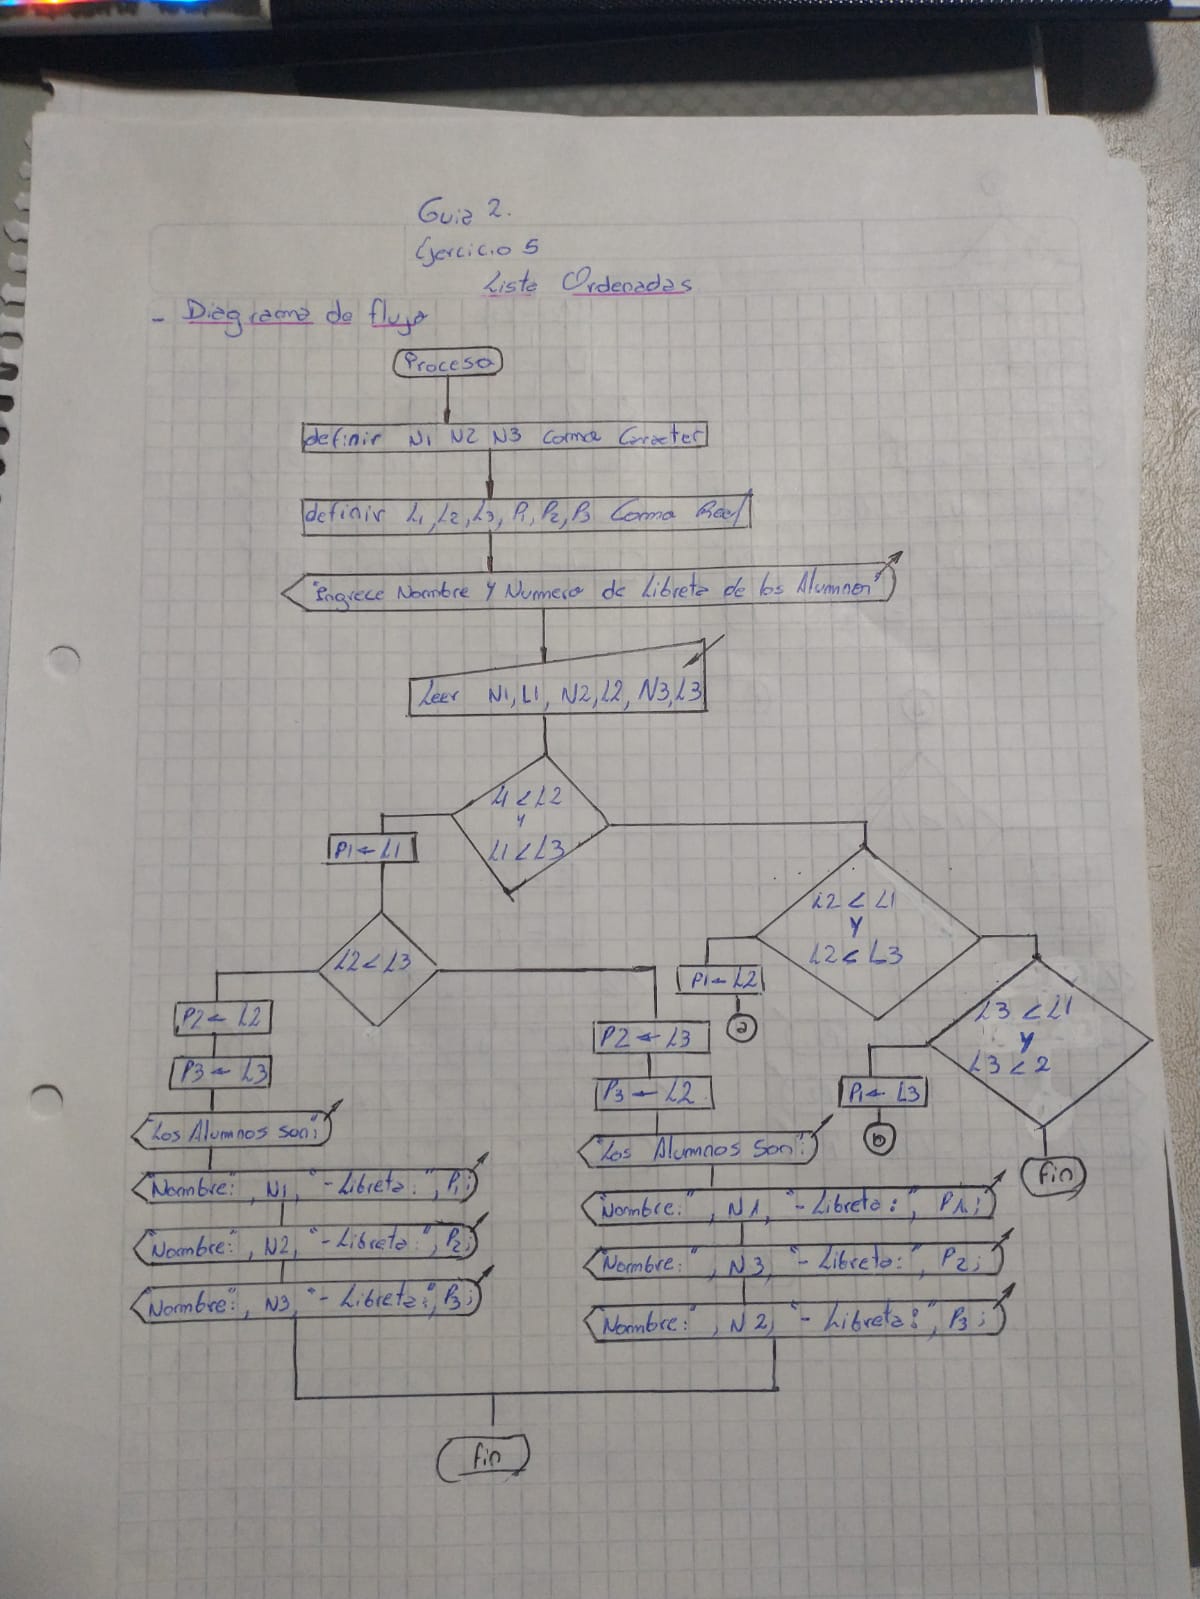 Guia 2.
Ejercicio 5
Lista Ordenadas
- Diagrama de flujo
Proceso
definir N1 N2 N3 como Caracter
definir L1, L2, L3, P1, P2, P3 Como Real
"Ingrece Nombre y Numero de Libreta de los Alumnos"
Leer N1, L1, N2, L2, N3, L3
L1 < L2
y
L1 < L3
P1 ← L1
L2 < L1
Y
L2 < L3
L2 < L3
P1 ← L2
a
L3 < L1
Y
L3 < 2
P1 ← L3
b
fin
P2 ← L2
P3 ← L3
"Los Alumnos son";
"Nombre:", N1, "- Libreta:", P1;
"Nombre:", N2, "- Libreta:", P2;
"Nombre:", N3, "- Libreta:", P3;
P2 ← L3
P3 ← L2
"Los Alumnos Son":
"Nombre:", N1, "- Libreta:", P1;
"Nombre:", N3, "- Libreta:", P2;
"Nombre:", N2, "- Libreta:", P3;
fin